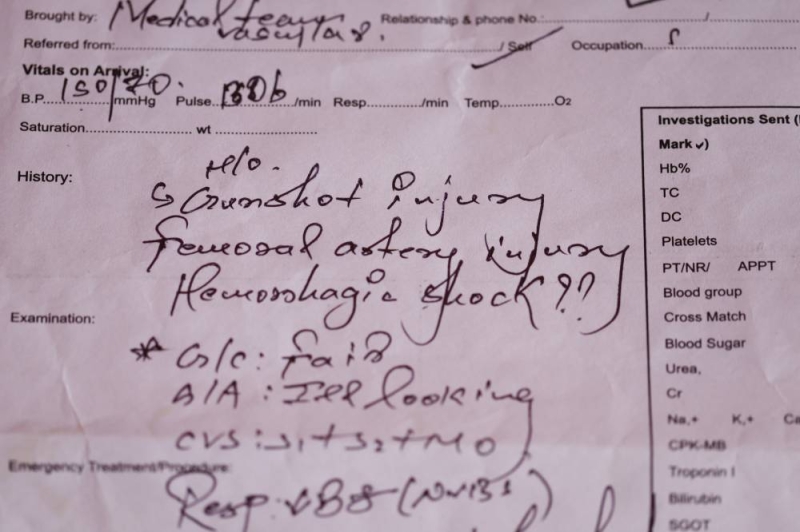 Brought by: Medical team Relationship & phone No.:............/............
vascular.
Referred from:............/ Self Occupation............
Vitals on Arrival:
B.P. 150/70 mmHg Pulse............/min Resp............/min Temp............O2
Saturation............ wt ............
Investigations Sent (
Mark ✓)
Hb%
TC
DC
Platelets
PT/NR/ APPT
Blood group
Cross Match
Blood Sugar
Urea,
Cr
Na,+ K,+ Ca
CPK-MB
Troponin I
Bilirubin
SGOT
History:
H/o.
Gunshot injury
femoral artery injury
Hemorrhagic shock??
Examination:
* G/C: fair
A/A: Ill looking
CVS: S1+S2+M0
Emergency Treatment/Procedure:
Resp: